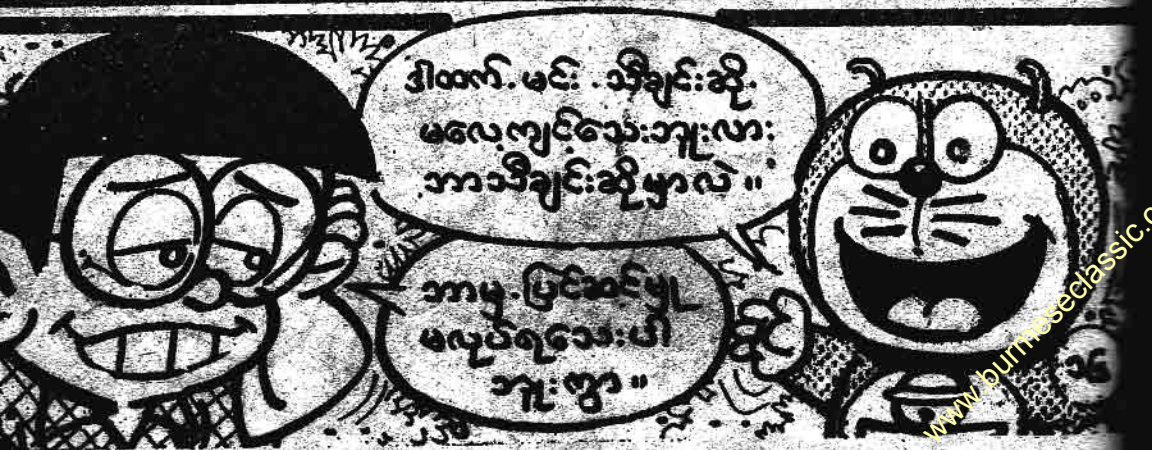 ဒါထက်. မင်း . သီချင်းဆို.
မလေ့ကျင့်သေးဘူးလား
ဘာသီချင်းဆိုမှာလဲ ။
ဘာမှ. ပြင်ဆင်မှု
မလုပ်ရသေးပါ
ဘူးကွာ ။
နိုင်
၁၆
www.burmeseclassic.c